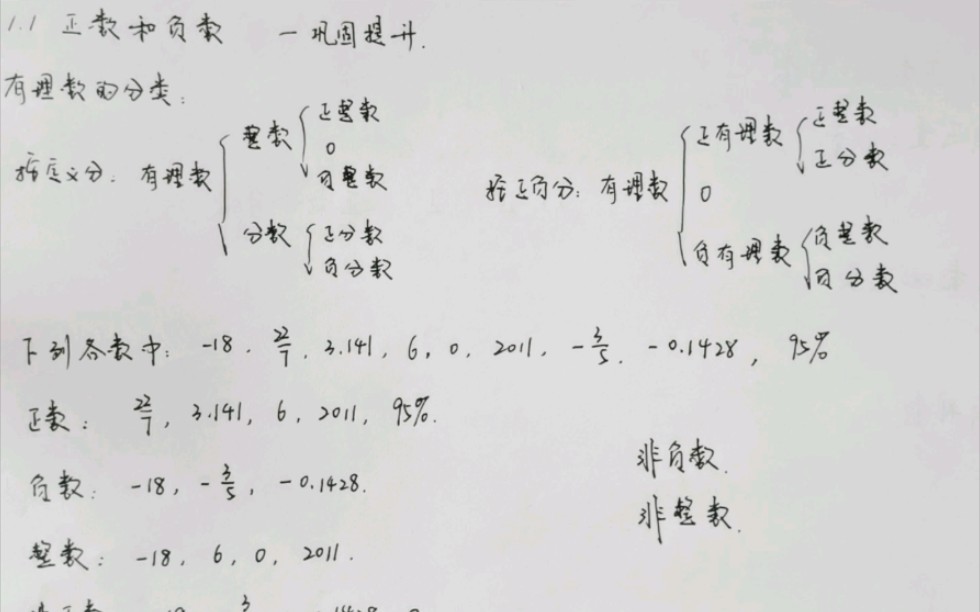 1.1 正数和负数 — 巩固提升.
有理数的分类:
按定义分: 有理数
整数
正整数
0
负整数
分数
正分数
负分数
按正负分: 有理数
正有理数
正整数
正分数
0
负有理数
负整数
负分数
下列各数中: -18, 22/7, 3.141, 6, 0, 2011, -3/5, -0.1428, 95%
正数: 22/7, 3.141, 6, 2011, 95%.
负数: -18, -3/5, -0.1428.
非负数.
非整数.
整数: -18, 6, 0, 2011.